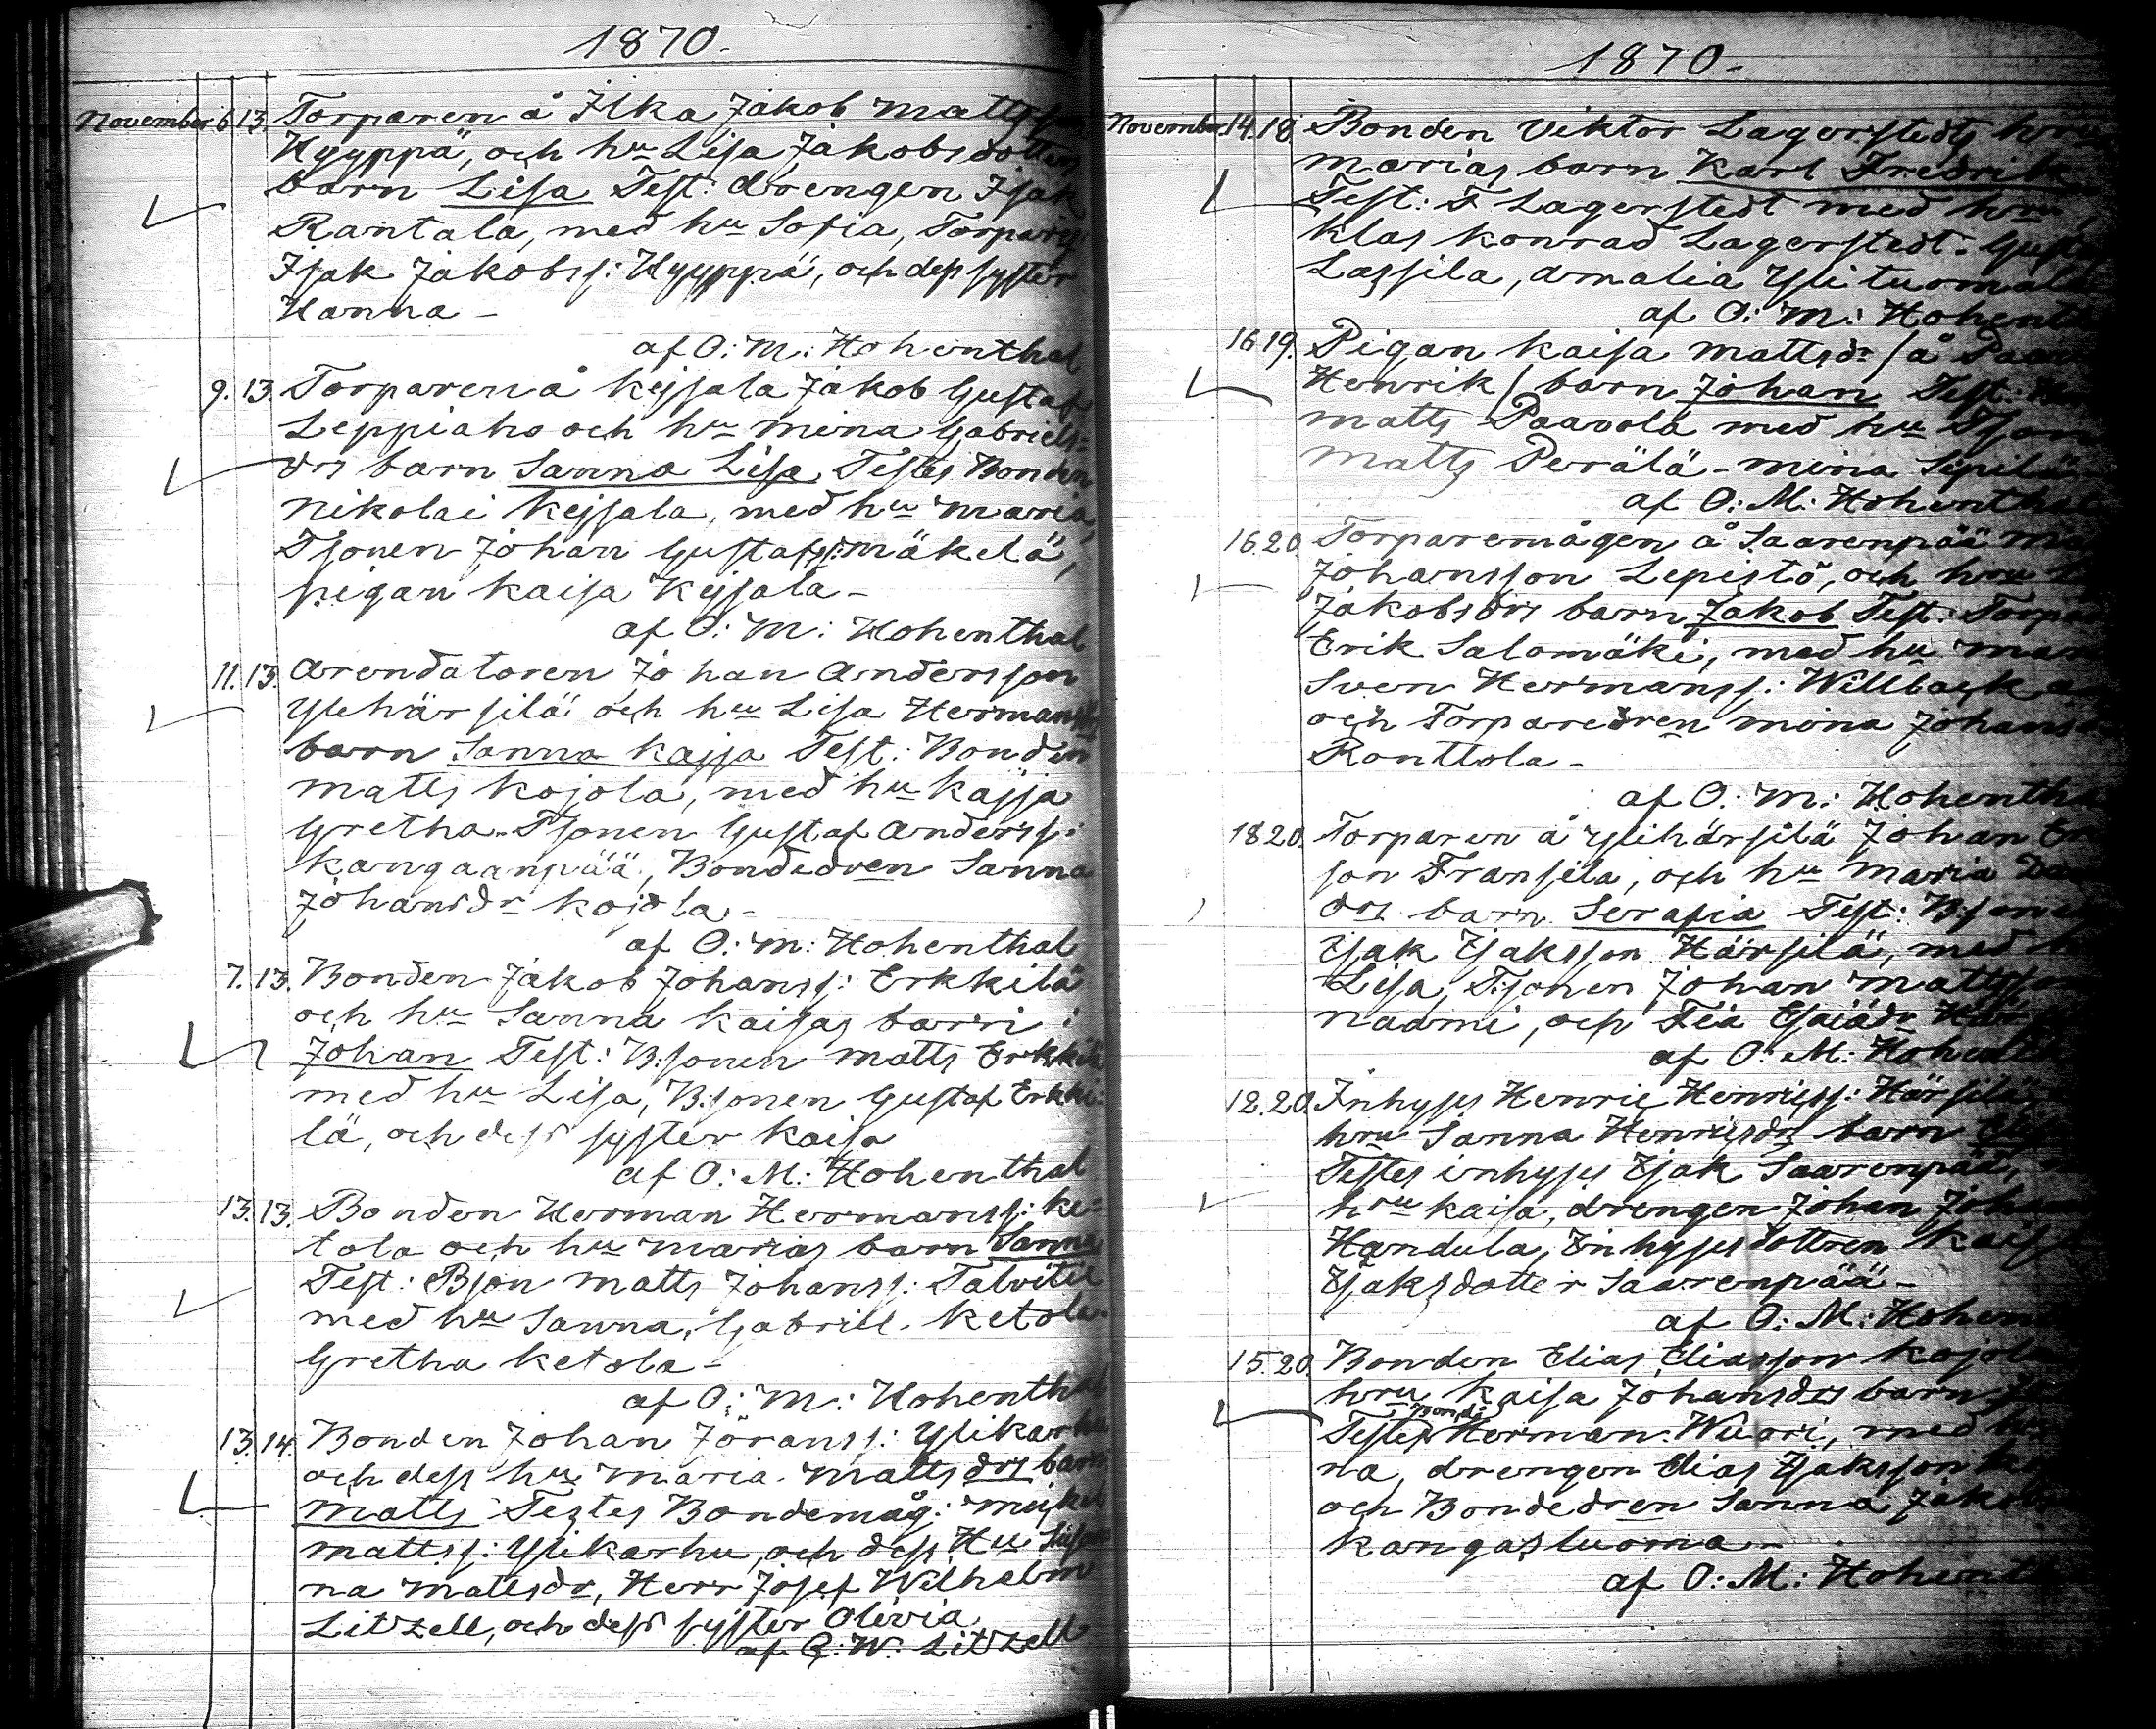 1870.
November 6 13. Torparen å Ilka Jakob Matts
Hyyppä, och hu Lisa Jakobsdotters
barn Lisa Test: drengen Isak
Rantala, med hu Sofia, Torpare
Isak Jakobss: Hyyppä, och dess syster
Hanna –
af O: M: Hohenthal
9. 13. Torparen å Kejsala Jakob Gustaf
Leppiaho och hu Mina Gabriels=
drs barn Sanna Lisa Testes Bonden
Nikolai Kejsala, med hu Maria,
Tsonen Johan Gustafss: Mäkelä,
pigan Kaisa Kejsala –
af O: M: Hohenthal
11. 13. Arendatoren Johan Andersson
Ylihärsilä och hu Lisa Hermans
barn Sanna Kajsa Test: Bonden
Matts Kojola, med hu Kajsa
Gretha. Tsonen Gustaf Anderss:
Kangaanpää, Bondedren Sanna
Johansdr Kojola –
af O: M: Hohenthal
7. 13. Bonden Jakob Johanss: Erkkilä
och hu Sanna Kaisas barn:
Johan Test: B:sonen Matts Erkkilä
med hu Lisa, B:sonen Gustaf Erkki=
lä, och dess syster Kaisa
af O: M: Hohenthal
13. 13. Bonden Herman Hermanss: Ke=
tola och hu Marias barn Sanna
Test: Bson Matts Johanss: Talvitie
med hu Sanna, Gabriel Ketola.
Gretha Ketola –
af O: M: Hohenthal
13. 14. Bonden Johan Jöranss: Ylikarhu
och dess hu Maria Mattsdrs barn
Matts Testes Bondemåg: Mickel
Mattss: Ylikarhu, och dess Hu Sus
na Mattsdr, Herr Josef Wilhelm
Litzell, och dess syster Olivia
af C: W: Litzell
1870 –
November 14. 18. Bonden Viktor Lagerstedts hru
Marias barn Karl Fredrik
Test: F Lagerstedt med hru,
Klas Konrad Lagerstedt. Gust
Lassila, Amalia Ylituomala
af O: M: Hohenth
16 19. Pigan Kaisa Mattsdr / å Paav
Henrik / barn Johan Test:
Matts Paavola med hu Tson
Matts Perälä – Mina Sipilä
af O: M: Hohenthal
16. 20. Torparemågen å Saarenpää Ma
Johansson Lepistö, och hru
Jakobsdrs barn Jakob Test: Torp
Erik Salomäki, med hu Mar
Sven Hermanss: Willback
och Torparedren Mina Johans
Ronttola –
af O: M: Hohentha
18 20. Torparen å Ylihärsilä Johan Er
son Fransila, och hu Maria Da
drs barn Serafia Test: B:sone
Isak Isaksson Härsilä, med
Lisa, T:sonen Johan Mattsson
Naami, och Fia Esaiädr Här
af O: M: Hohenth
12. 20. Inhyses Henric Henricss: Härsilä
hru Sanna Henricsdrs barn
Testes inhyses Isak Saarenpää,
hru Kaisa, drengen Johan Joh
Handula, Inhysesdottren Kaisa
Isaksdotter Saarenpää –
af O: M: Hohen
15. 20. Bonden Elias Eliasson Kojola
hru Kaisa Johansdrs barn
Testes Bonden Herman Wuori, med
na, drengen Elias Isaksson
och Bondedren Sanna Jakob
Kangasluoma –
af O: M: Hohenth